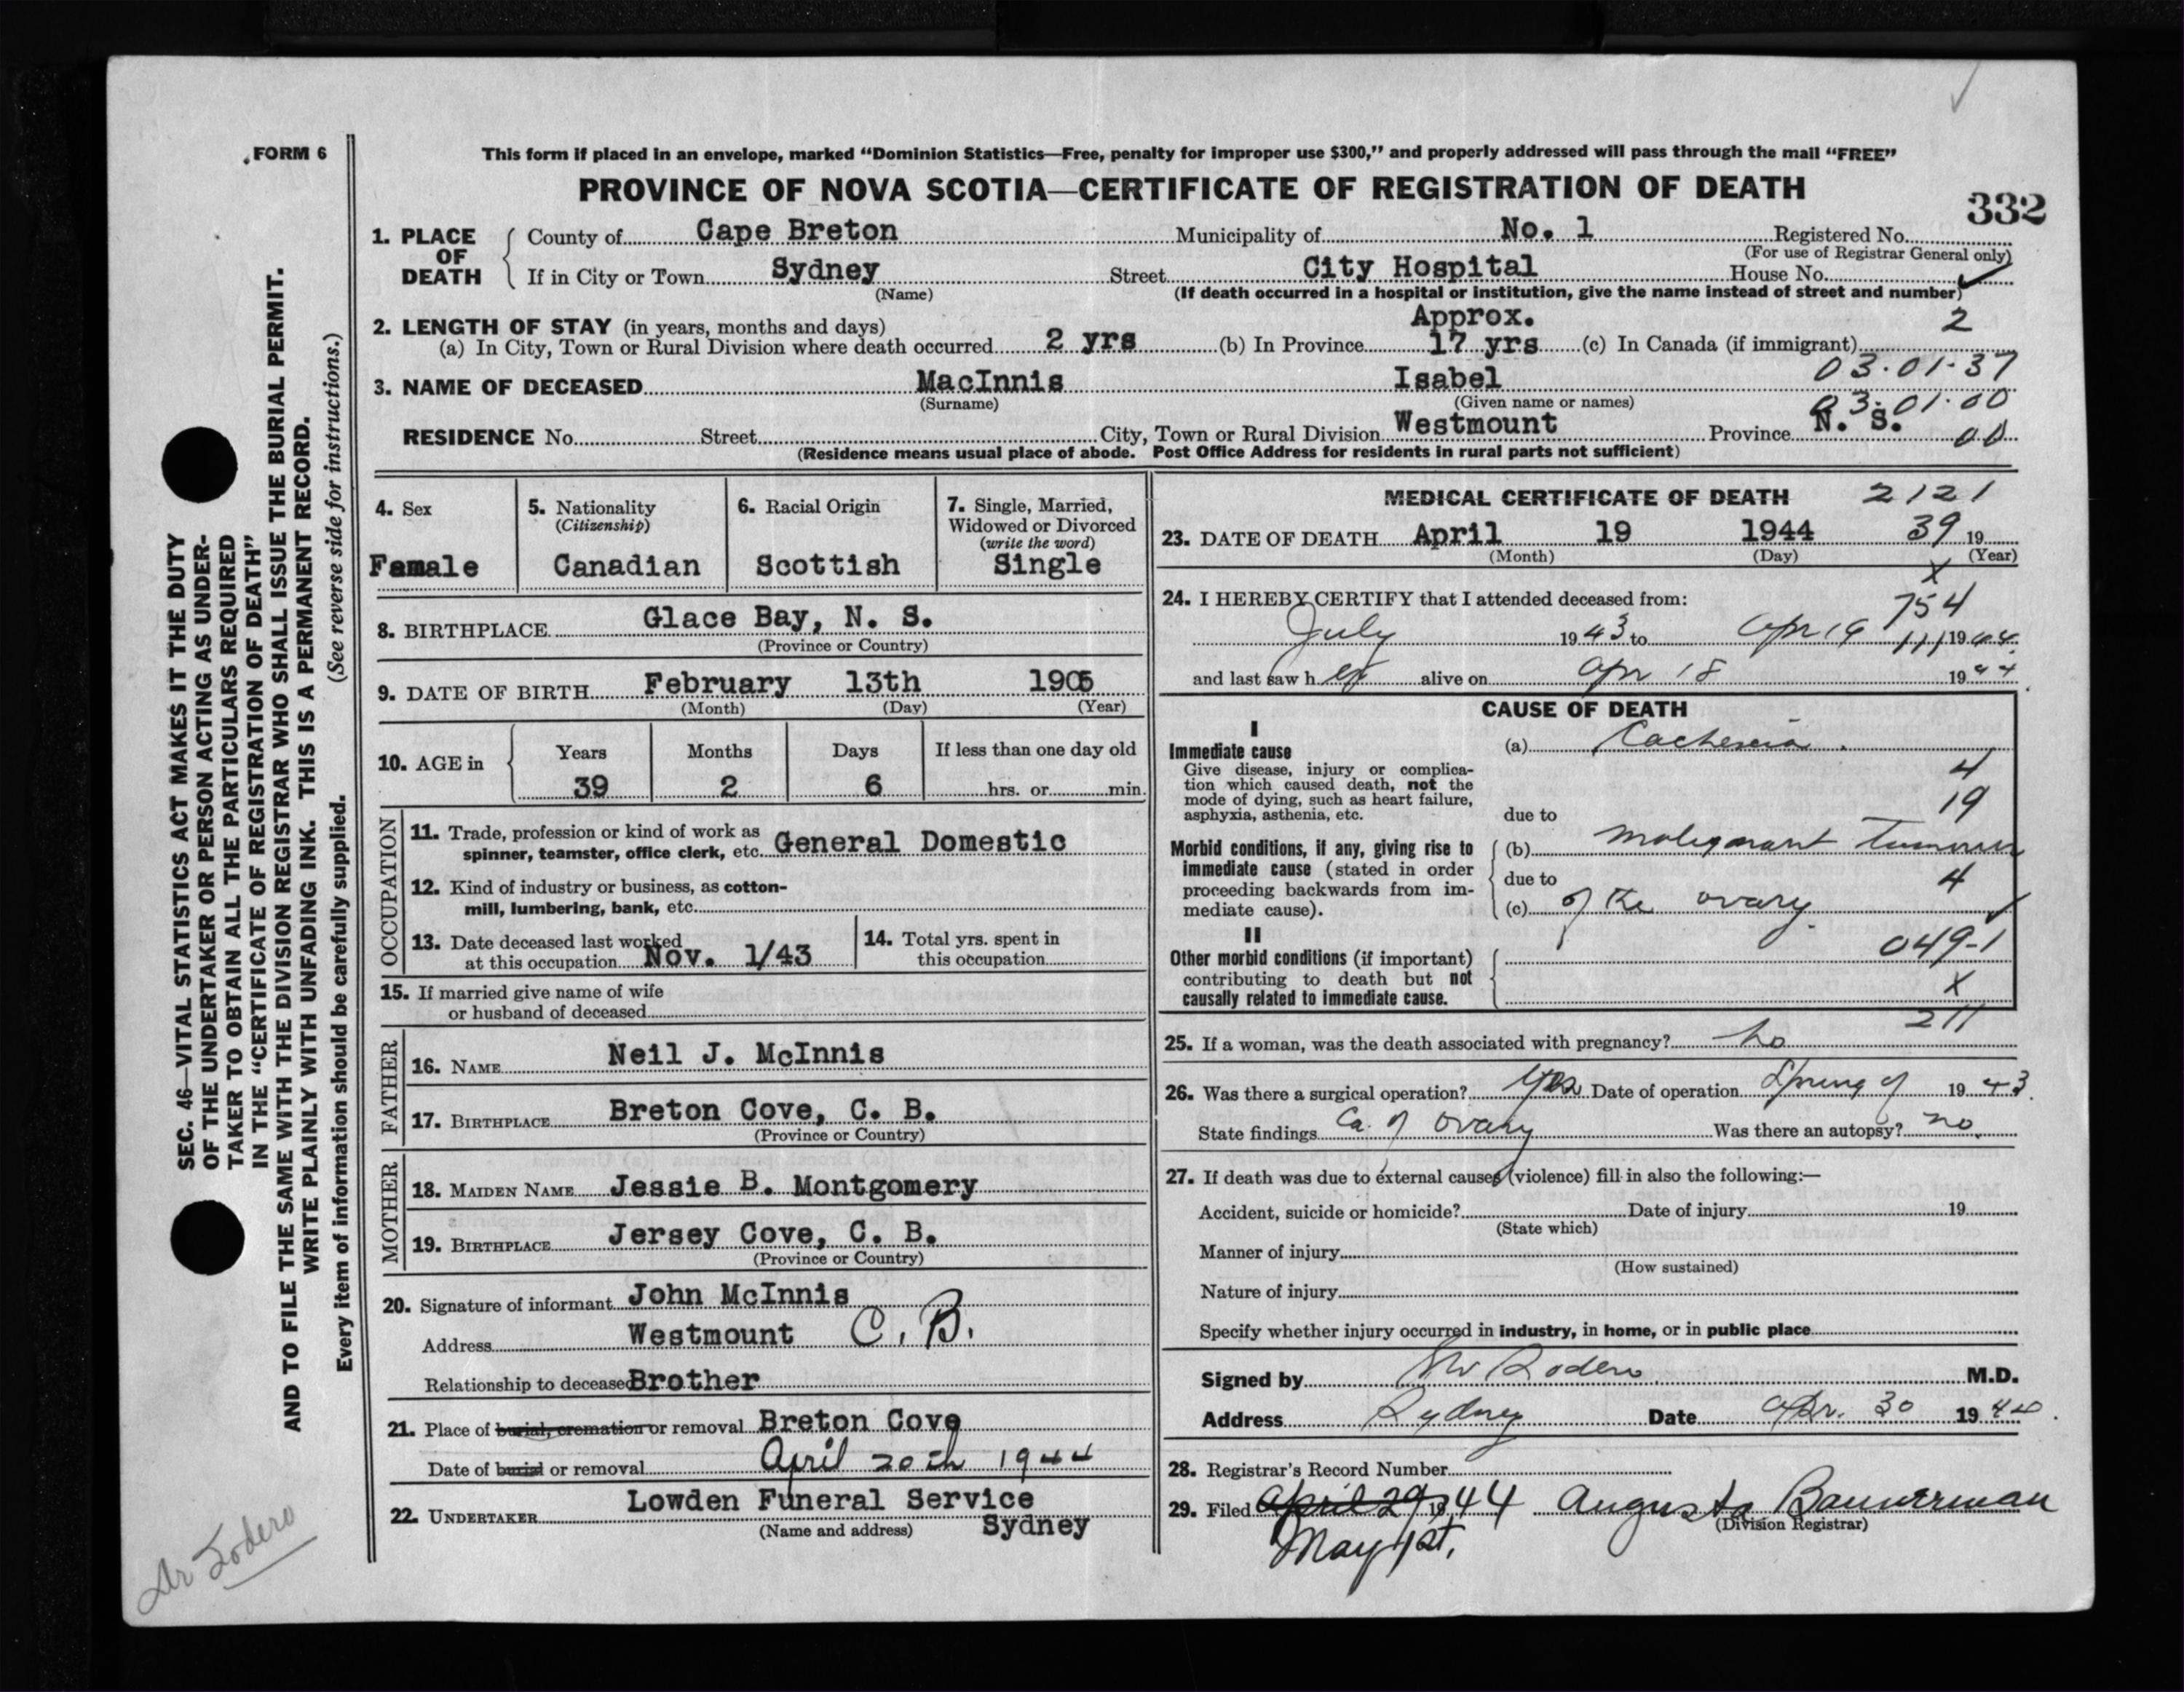 FORM 6
This form if placed in an envelope, marked "Dominion Statistics—Free, penalty for improper use $300," and properly addressed will pass through the mail "FREE"
PROVINCE OF NOVA SCOTIA—CERTIFICATE OF REGISTRATION OF DEATH
332
1. PLACE OF DEATH County of Cape Breton Municipality of No. 1 Registered No.
(For use of Registrar General only)
If in City or Town Sydney Street City Hospital House No.
(Name) (If death occurred in a hospital or institution, give the name instead of street and number)
2. LENGTH OF STAY (in years, months and days) Approx. 2
(a) In City, Town or Rural Division where death occurred 2 yrs (b) In Province 17 yrs (c) In Canada (if immigrant)
03·01·37
3. NAME OF DECEASED MacInnis Isabel
(Surname) (Given name or names) 03·01·00
RESIDENCE No. Street City, Town or Rural Division Westmount Province N. S. 00
(Residence means usual place of abode. Post Office Address for residents in rural parts not sufficient)
4. Sex
Female
5. Nationality
(Citizenship)
Canadian
6. Racial Origin
Scottish
7. Single, Married,
Widowed or Divorced
(write the word)
Single
8. BIRTHPLACE Glace Bay, N. S.
(Province or Country)
9. DATE OF BIRTH February 13th 1905
(Month) (Day) (Year)
10. AGE in
Years Months Days If less than one day old
39 2 6 hrs. or min.
OCCUPATION
11. Trade, profession or kind of work as
spinner, teamster, office clerk, etc. General Domestic
12. Kind of industry or business, as cotton-
mill, lumbering, bank, etc.
13. Date deceased last worked
at this occupation Nov. 1/43
14. Total yrs. spent in
this occupation
15. If married give name of wife
or husband of deceased
FATHER
16. NAME Neil J. McInnis
17. BIRTHPLACE Breton Cove, C. B.
(Province or Country)
MOTHER
18. MAIDEN NAME Jessie B. Montgomery
19. BIRTHPLACE Jersey Cove, C. B.
(Province or Country)
20. Signature of informant John McInnis
Address Westmount C. B.
Relationship to deceased Brother
21. Place of burial, cremation or removal Breton Cove
Date of burial or removal April 20th 1944
22. UNDERTAKER Lowden Funeral Service
(Name and address) Sydney
MEDICAL CERTIFICATE OF DEATH 2121
23. DATE OF DEATH April 19 1944 39 19
(Month) (Day) (Year)
X
24. I HEREBY CERTIFY that I attended deceased from: 754
July 1943 to Apr 19 111 1944
and last saw her alive on Apr 18 1944
CAUSE OF DEATH
I
Immediate cause (a) Cachexia.
Give disease, injury or complica-
tion which caused death, not the
mode of dying, such as heart failure,
asphyxia, asthenia, etc.
4
19
due to
Morbid conditions, if any, giving rise to
immediate cause (stated in order
proceeding backwards from im-
mediate cause).
(b) malignant Tumour
due to 4
(c) of the ovary.
II
Other morbid conditions (if important)
contributing to death but not
causally related to immediate cause.
049-1
X
211
25. If a woman, was the death associated with pregnancy? no
26. Was there a surgical operation? Yes Date of operation Spring of 1943.
State findings Ca. of ovary Was there an autopsy? no.
27. If death was due to external causes (violence) fill in also the following:—
Accident, suicide or homicide? Date of injury 19
(State which)
Manner of injury
(How sustained)
Nature of injury
Specify whether injury occurred in industry, in home, or in public place
Signed by Rodero M.D.
Address Sydney Date Apr. 30 1944.
28. Registrar's Record Number
29. Filed April 29, 1944 Augusta Bannerman
(Division Registrar)
May 1st,
SEC. 46—VITAL STATISTICS ACT MAKES IT THE DUTY
OF THE UNDERTAKER OR PERSON ACTING AS UNDER-
TAKER TO OBTAIN ALL THE PARTICULARS REQUIRED
IN THE "CERTIFICATE OF REGISTRATION OF DEATH"
AND TO FILE THE SAME WITH THE DIVISION REGISTRAR WHO SHALL ISSUE THE BURIAL PERMIT.
WRITE PLAINLY WITH UNFADING INK. THIS IS A PERMANENT RECORD.
Every item of information should be carefully supplied. (See reverse side for instructions.)
Dr